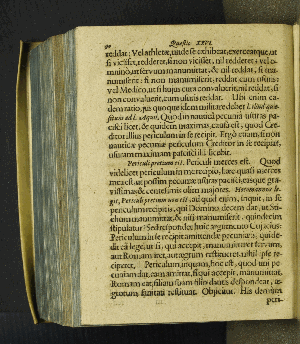 90 Quæstio XXVI.
reddat: Vel athletæ, unde se exhibeat, exerceatque, ut
si vicisset, redderet, si non vicisset, nil redderet: vel do-
mino, ut servum manumittat, & nil reddat, si ma-
numiserit: si non manumiserit, reddat cum usuris:
vel Medico, ut si hujus cura convaluerit, nil reddat, si
non convaluerit, cum usuris reddat. Ubi enim ea-
dem ratio, jus quoque idem militare debet
Quod in nautica pecunia usuras pa-
cisci licet, & quidem maximas, causa est, quod Cre-
ditor illius periculum in se recipit. Ergo etiam si non
nauticæ pecuniæ periculum Creditor in se recipiat,
usuram maximam pacisci illi licebit.
Periculi pretium est. Periculi merces est. Quod
videlicet periculum in me recipio, hæc quasi merces
mea est, ut possim pecuniæ usuras pacisci, easque gra-
vissimas, & centesimis olim majores.
periculum recipitis, qui Domino decem dat, ut Sti-
chum manumittat, & nisi manumiserit, quindecim
stipulatur? Sed respondet huic argumento Cujacius:
Periculum in se recipit amittendæ pecuniæ, quid-
dat ea lege, ut si, qui accepit, manumiserit servum,
aut Romam iret, aut ægrotum restitueret, nihil ipse re-
ciperet. Periculum inquam, hoc est, quod uni pe-
cuniam dat, eam amittat, si qui accepit, manumittat,
Romam eat, filiam suam filio dantis despondeat,
ægrotum sanitati restituat. Objicitur. His demum
peri-